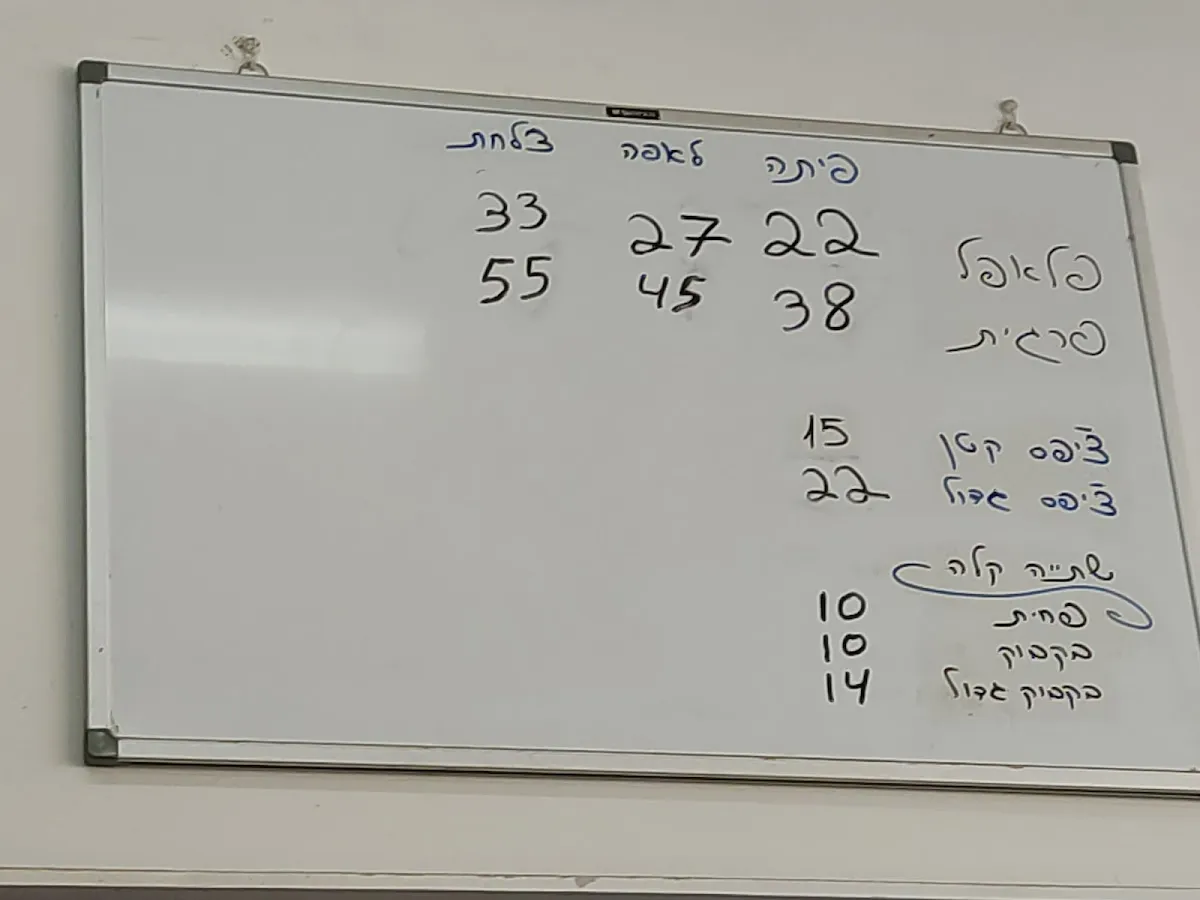 פיתה לאפה צלחת
פלאפל 22 27 33
פרגית 38 45 55
צ'יפס קטן 15
צ'יפס גדול 22
שתייה קלה
פחית 10
בקבוק 10
בקבוק גדול 14